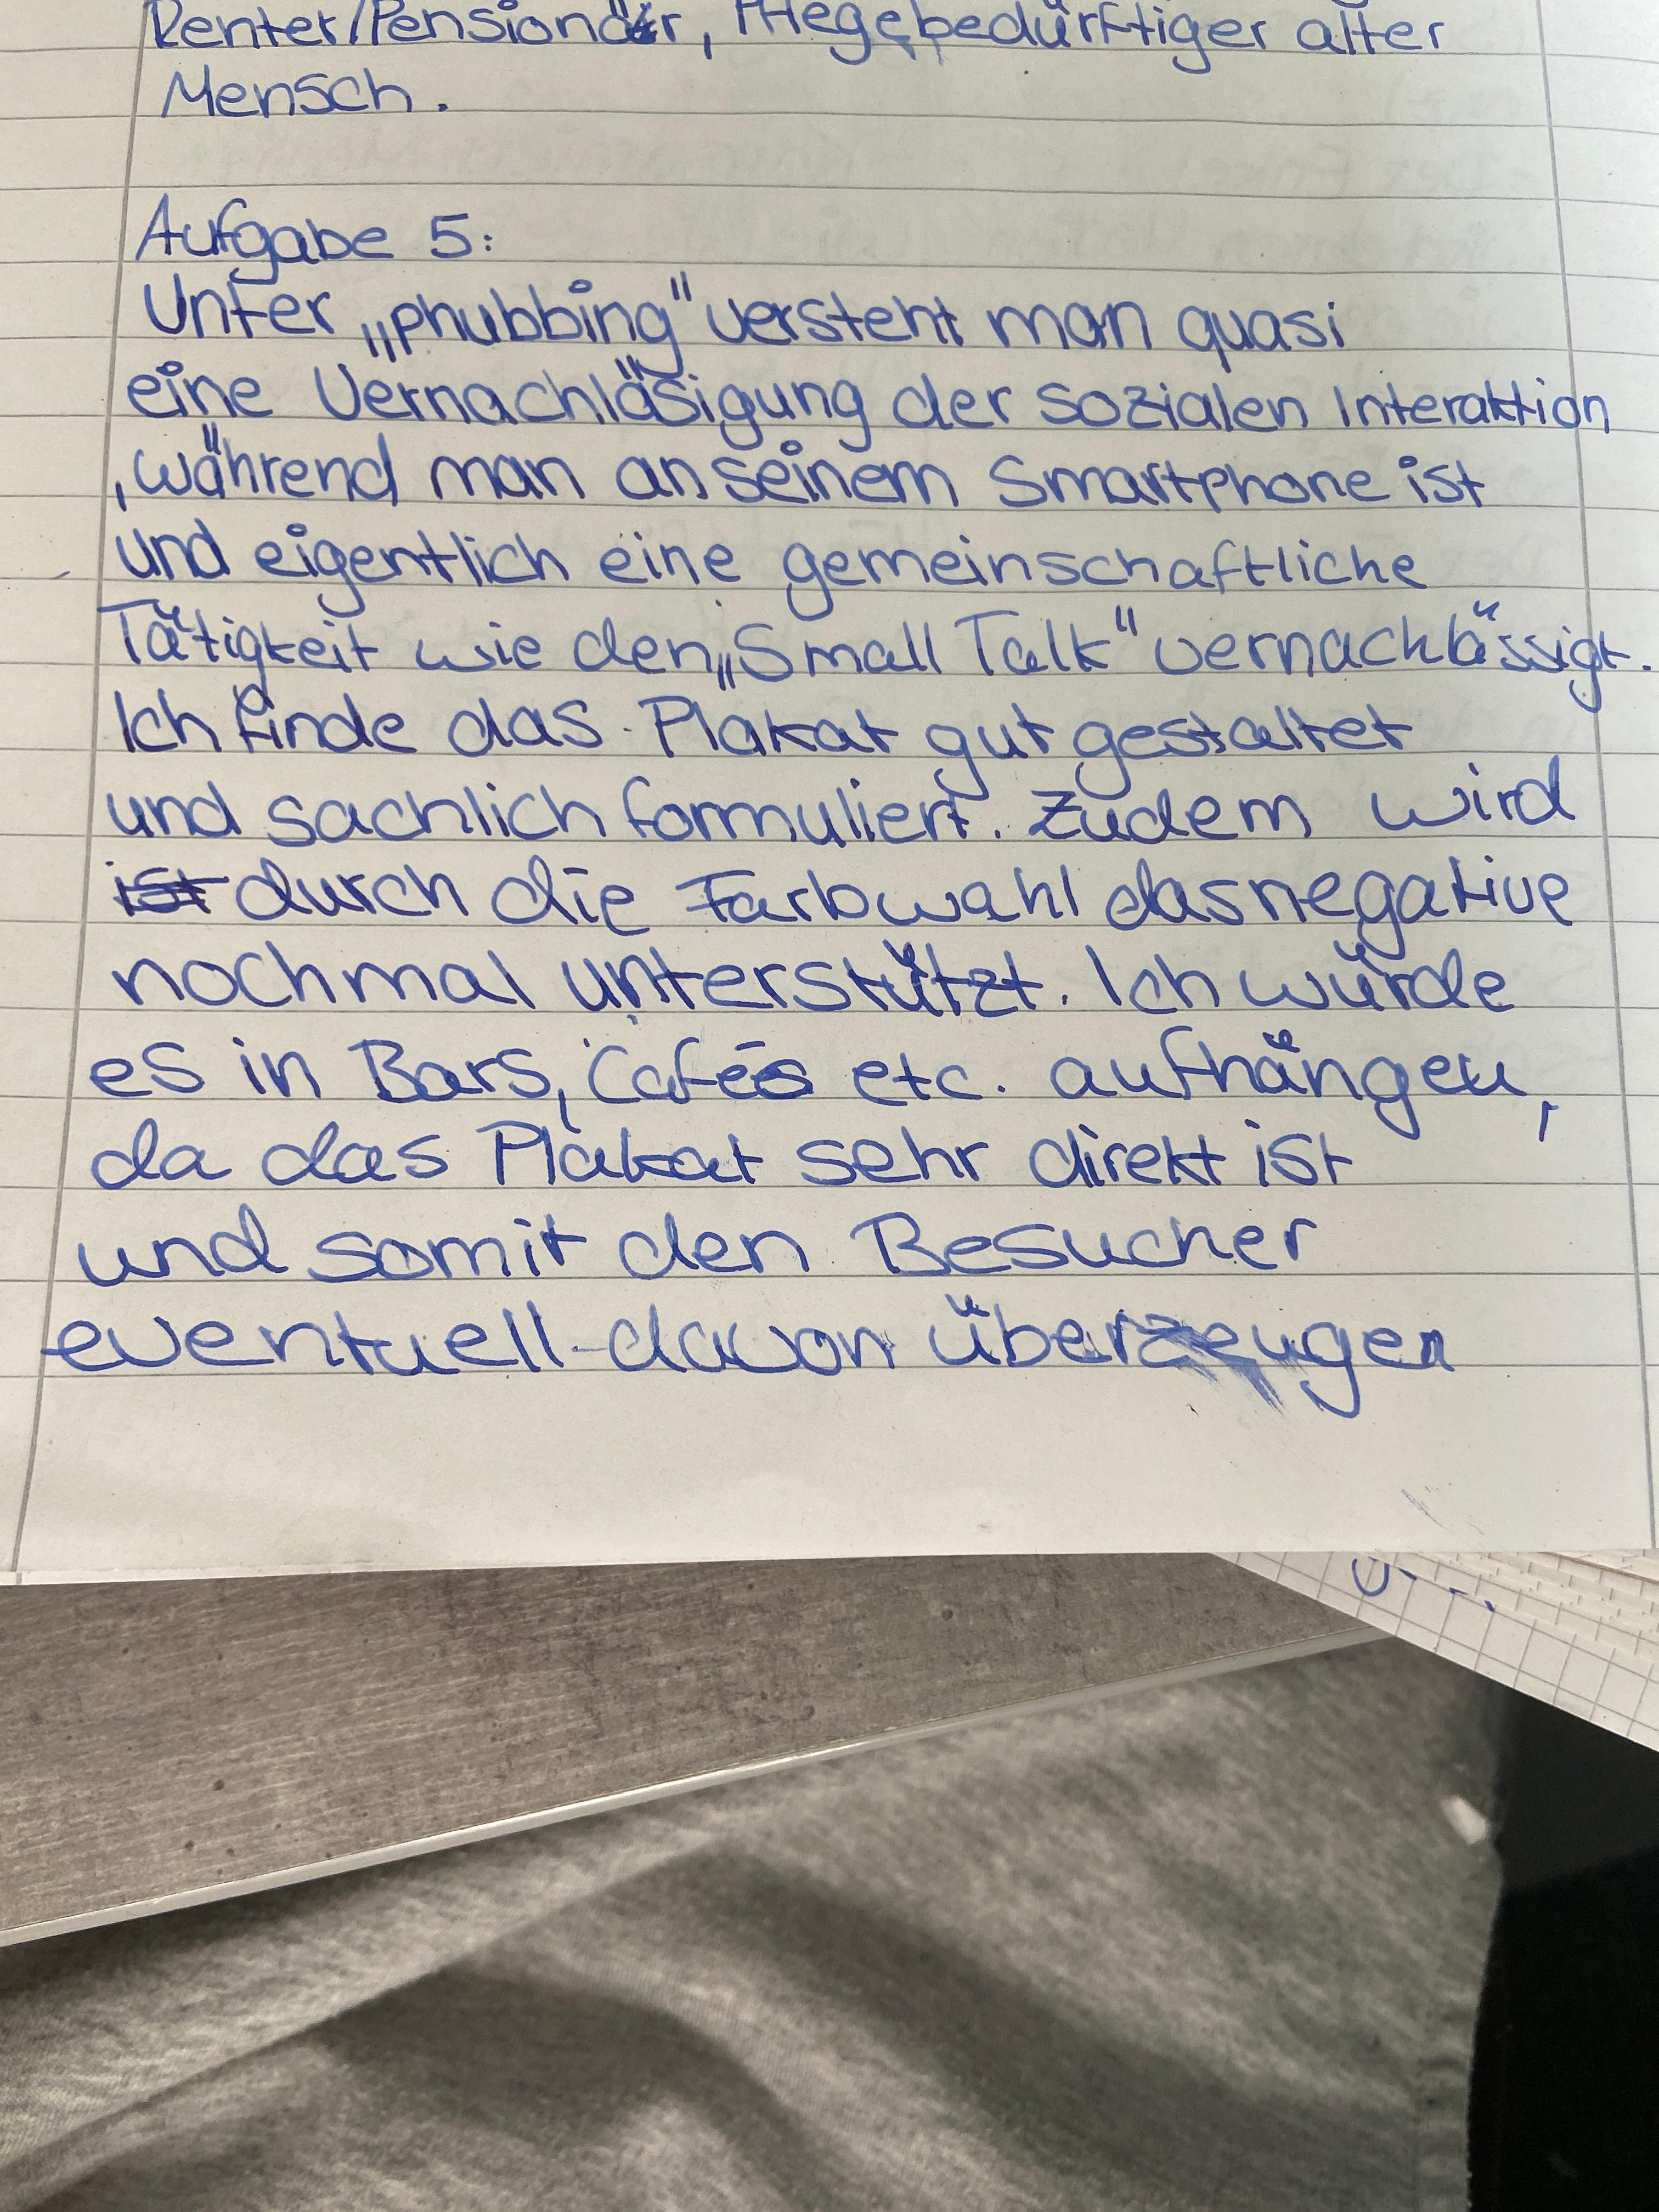 Renter/Pensionär, Pflegebedürftiger alter
Mensch.
Aufgabe 5:
Unter „phubbing" versteht man quasi
eine Vernachläsigung der sozialen Interaktion
, während man an seinem Smartphone ist
und eigentlich eine gemeinschaftliche
Tätigkeit wie den „Small Talk" vernachlässigt.
Ich finde das Plakat gut gestaltet
und sachlich formuliert. Zudem wird
ist durch die Farbwahl das negative
nochmal unterstützt. Ich würde
es in Bars, Cafés etc. aufhängen,
da das Plakat sehr direkt ist
und somit den Besucher
eventuell davon überzeugen